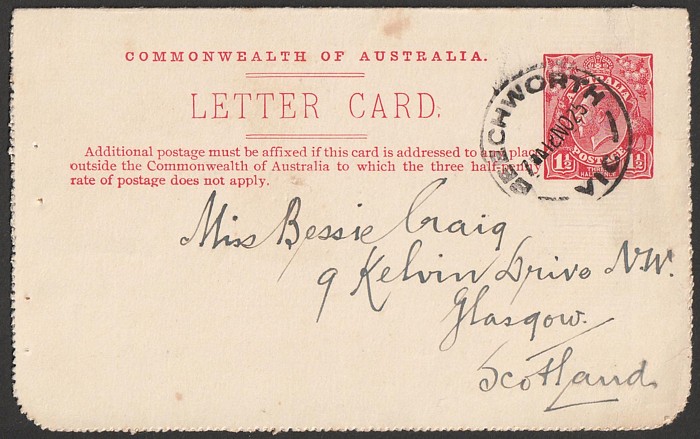 COMMONWEALTH OF AUSTRALIA.
LETTER CARD.
Additional postage must be affixed if this card is addressed to any place
outside the Commonwealth of Australia to which the three half-penny
rate of postage does not apply.
AUSTRALIA
POSTAGE
1½ 1½
THREE
HALFPENCE
BEECHWORTH
VIC
Miss Bessie Craig
9 Kelvin Drive N.W.
Glasgow.
Scotland.